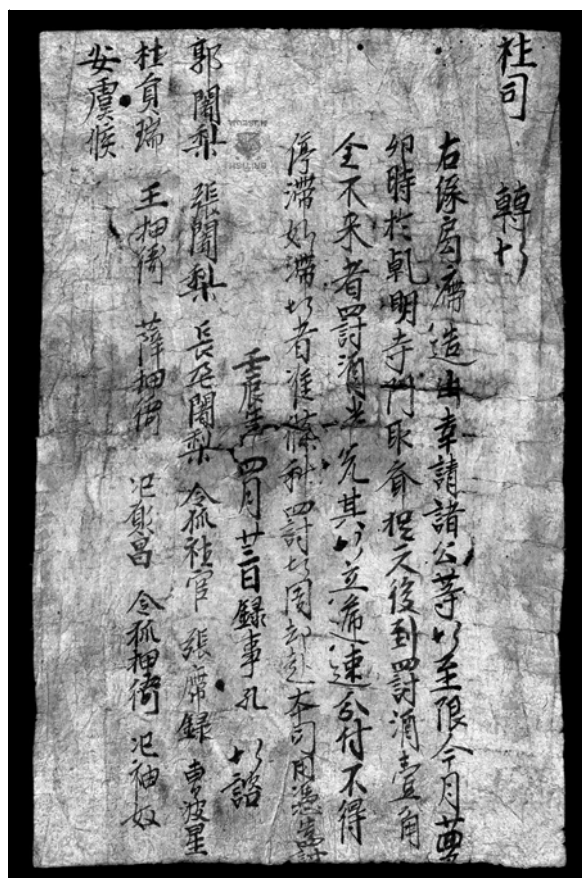 社司 轉帖
右緣局席造出幸請諸公等帖至限今月
卯時於乾明寺門取齊捉二人後到罰酒壹角
全不來者罰酒半瓮其帖立遞速分付不得
停滯如滯帖者准條科罰帖周却赴本司用憑告罰
壬辰年四月廿三日錄事孔 帖諮
郭闍梨 張闍梨 闍梨 令狐社官 張席錄 曹波星
員瑞 王押衙 薛押衙 氾願昌 令狐押衙 氾袖奴
安虞候
BRITISH MUSEUM